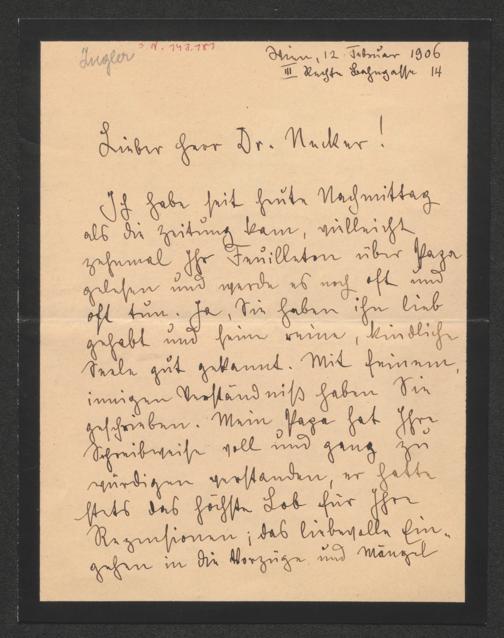 I.N. 143.181
Wien, 12. Februar 1906
III Rechte Bahngasse 14
Lieber Herr Dr. Necker!
Ich habe seit heute Nachmittag
als die Zeitung kam, vielleicht
zehnmal Ihr Feuilleton über Papa
gelesen und werde es noch oft und
oft tun. Ja, Sie haben ihn lieb
gehabt und seine reine, kindliche
Seele gut gekannt. Mit feinem,
innigen Verständniß haben Sie
geschrieben. Mein Papa hat Ihre
Schreibweise voll und ganz zu
würdigen verstanden, er hatte
stets das höchste Lob für Ihre
Rezensionen; das liebevolle Ein-
gehen in die Vorzüge und Mängel